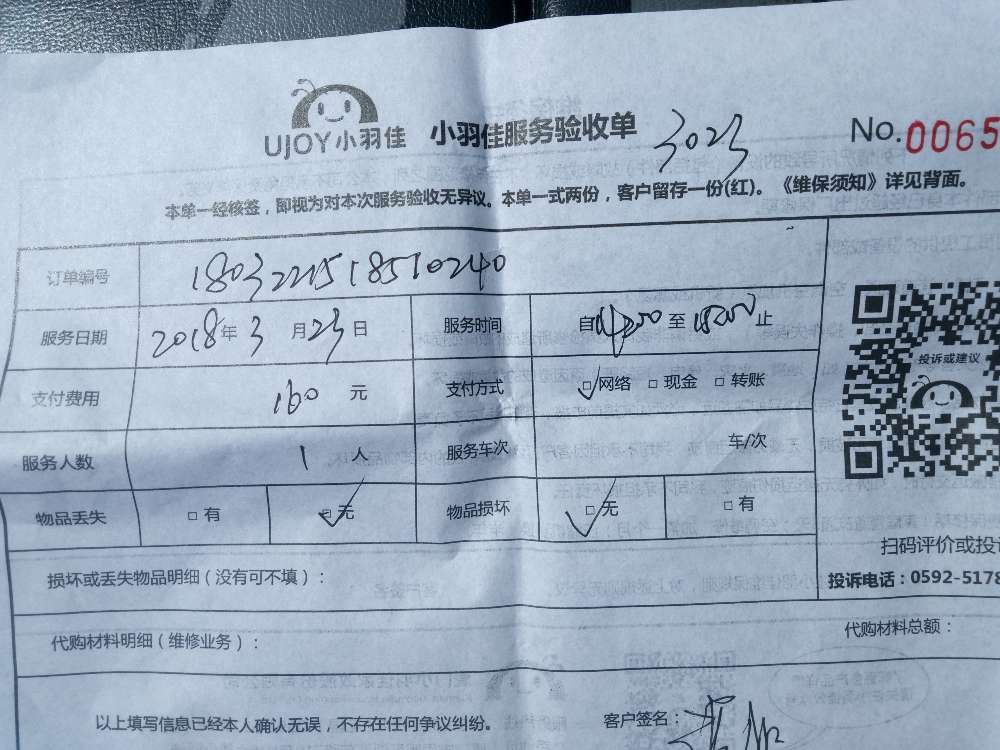 UJOY小羽佳 小羽佳服务验收单 3023 No.0065
本单一经核签，即视为对本次服务验收无异议。本单一式两份，客户留存一份(红)。《维保须知》详见背面。
订单编号 1803221518510240
服务日期 2018年3月23日 服务时间 自14:00至18:00止
支付费用 160 元 支付方式 ☑网络 □现金 □转账
投诉或建议
服务人数 1 人 服务车次 车/次
物品丢失 □有 ☑无 物品损坏 ☑无 □有
扫码评价或投诉
损坏或丢失物品明细（没有可不填）：
投诉电话：0592-5178
代购材料明细（维修业务）： 代购材料总额：
以上填写信息已经本人确认无误，不存在任何争议纠纷。 客户签名：